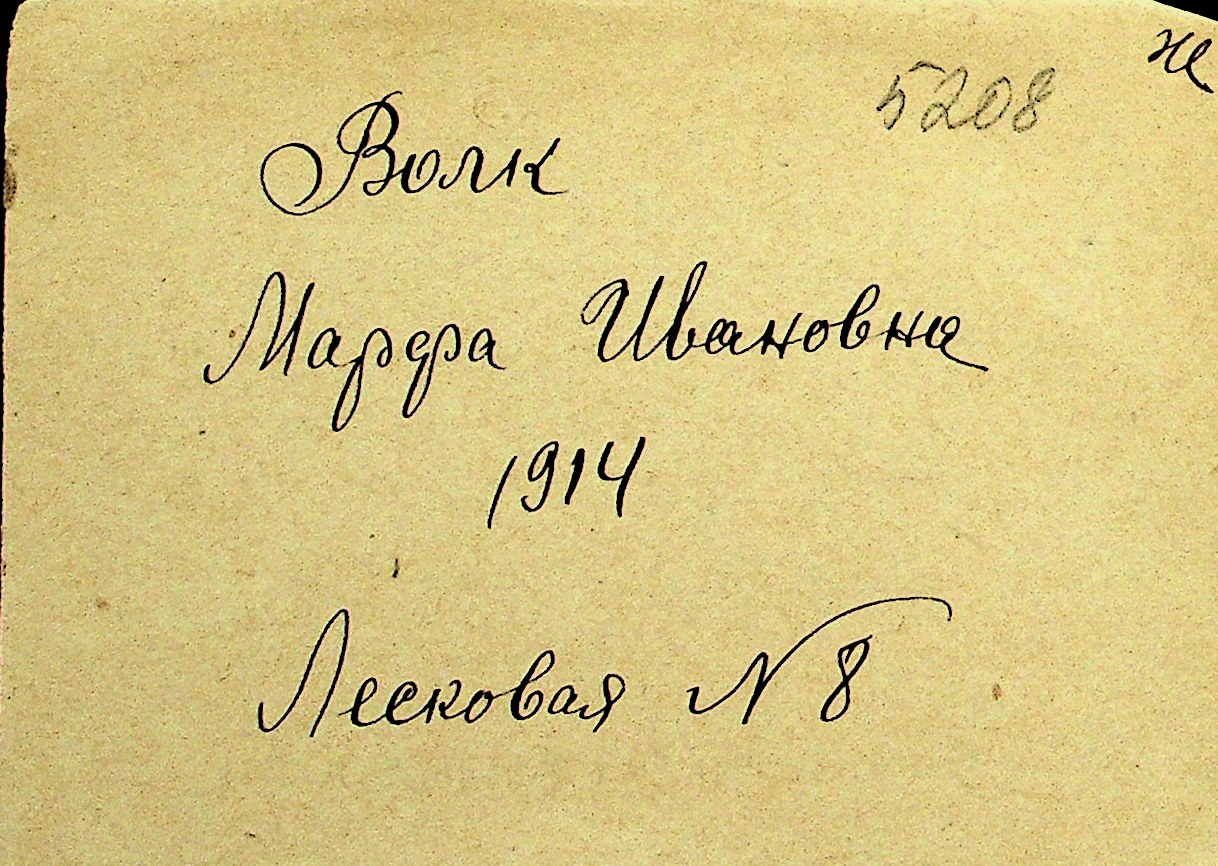 ж
5208
Волк
Марфа Ивановна
1914
Лесковая N 8